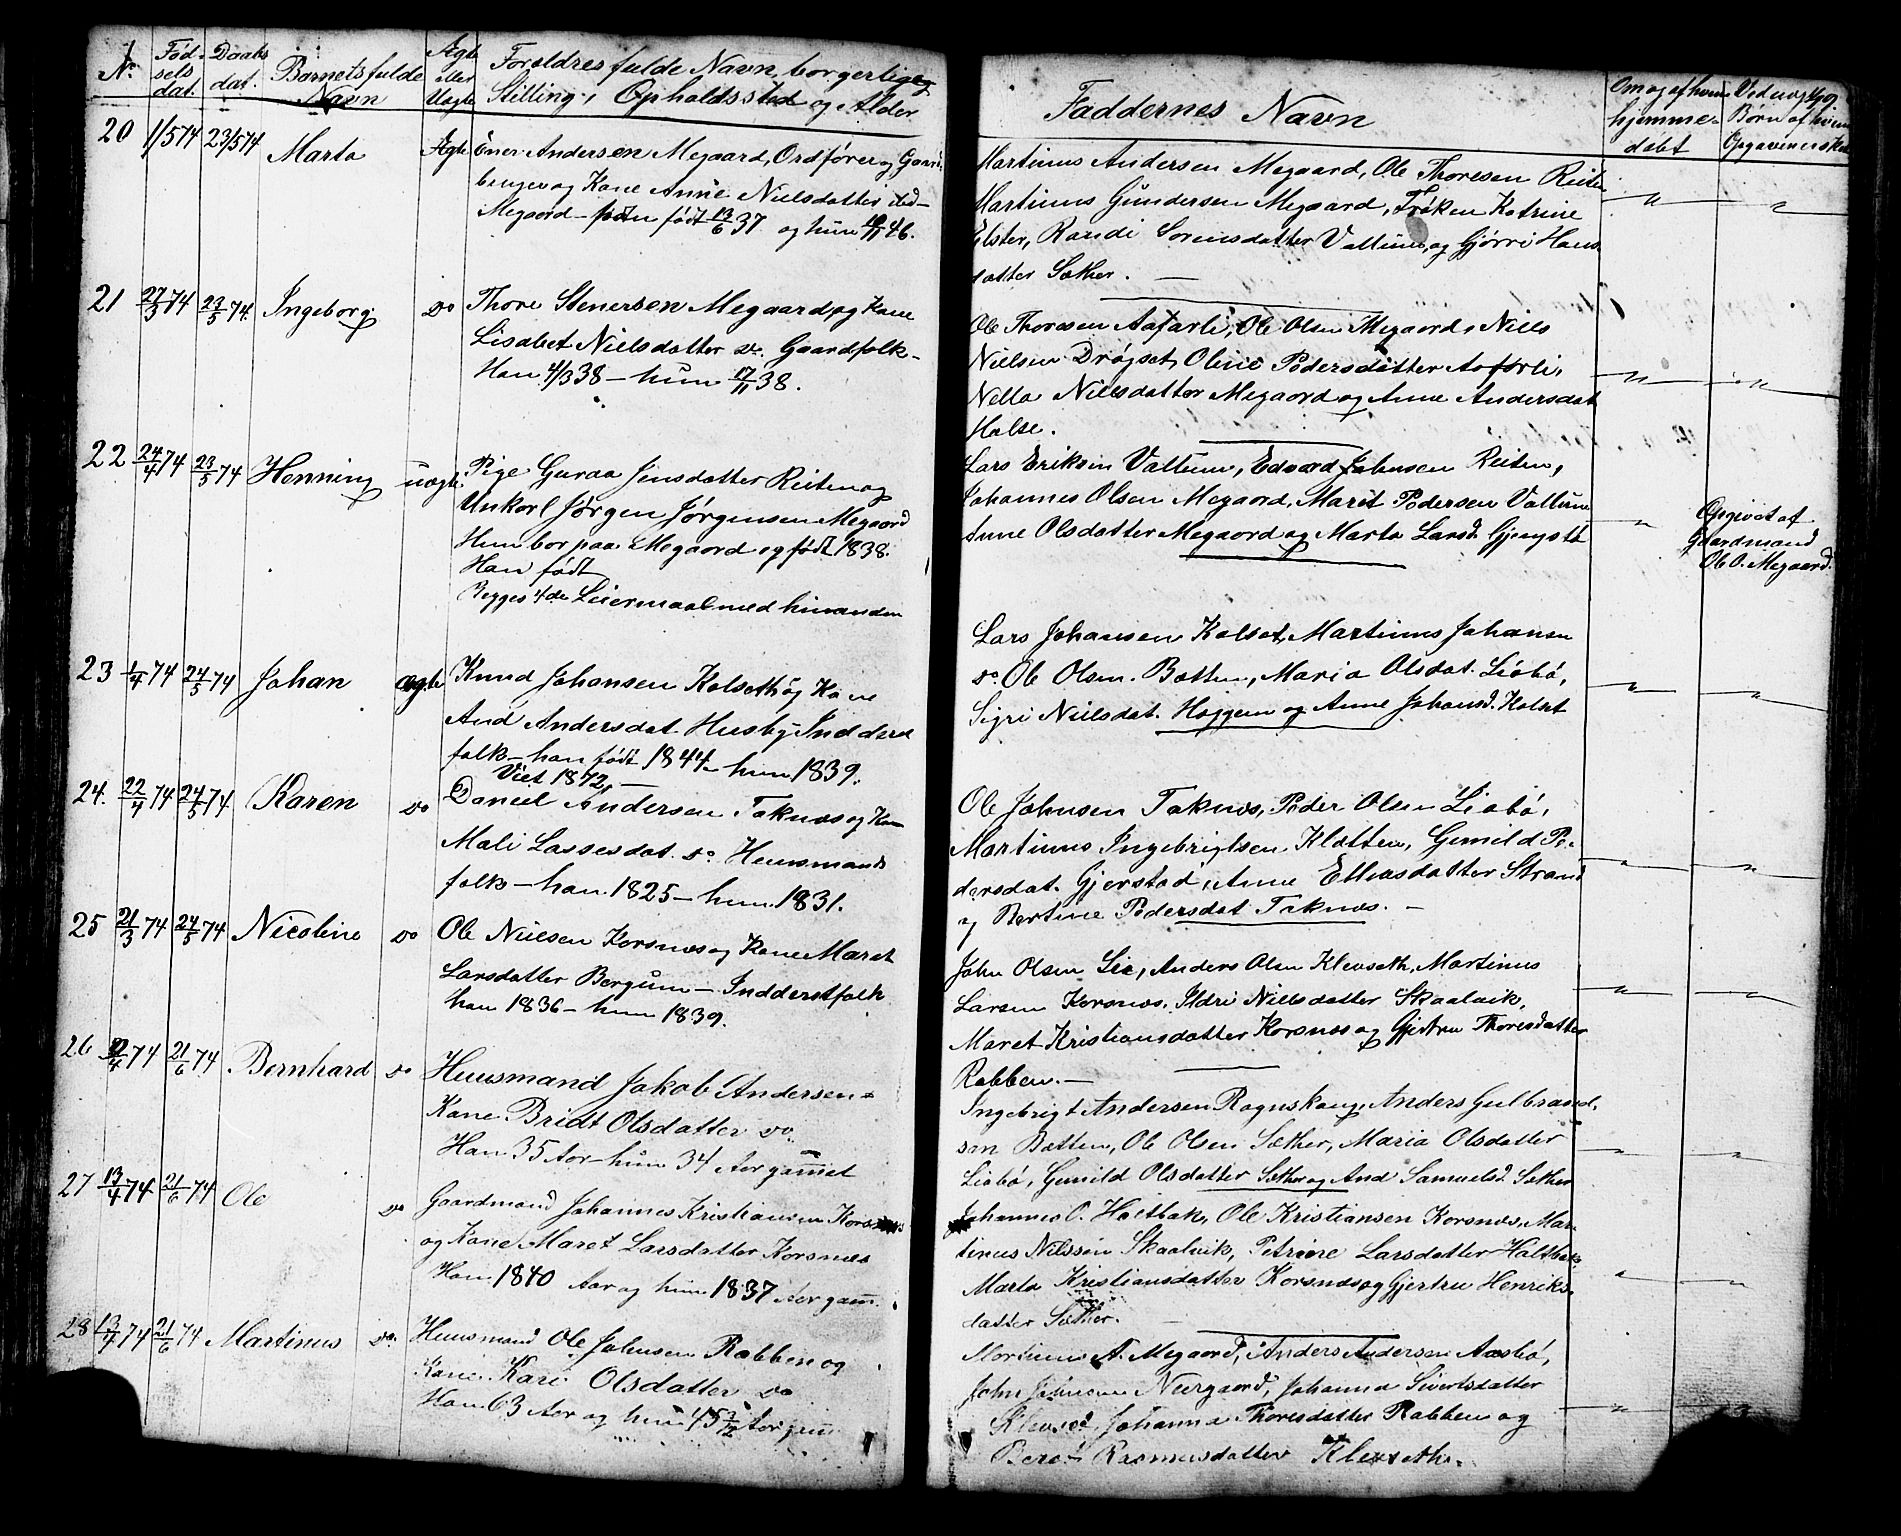 No.
Fød-
sels
dat.
Daabs
dat.
Barnets fulde
Navn
Ægte
eller
Uægte
Forældres fulde Navn, borgerlige
Stilling, Opholdssted og Alder
Faddernes Navn
Om og af hvem
hjemme-
døbt
Ved uægte
Børn af hvem
Opgaven er skeet
20 1/5 74 23/5 74 Marta Ægte Ener Andersen Megaard, Ordfører og Gaard-
bruger og Kone Anne Nielsdatter sted-
Megaard - født 13/6 37 og hun 46.
Martinus Andersen Megaard, Ole Thoresen Reiten
Martinus Gundersen Megaard, Frøken Katrine
Elster, Randi Sørensdatter Valtum, og Gjørri Hans-
datter Sæther. —
21 27/3 74 23/5 74. Ingeborg do Thore Stenersen Megaard, og Kone
Lisabet Nielsdatter do. Gaardfolk -
Han 4/3 38 - hun 17/11 38.
Ole Thoresen Aafarli, Ole Olsen Megaard, Niels
Nielsen Drøgset, Oline Pedersdatter Aafarli,
Nella Nielsdatter Megaard og Anne Andersdat
Halse.
22 24/4 74 23/5 74 Henning uægte. Pige Guraa Jensdatter Reiten og
Unkarl Jørgen Jørgensen Megaard
Hun bor paa Megaard og født 1838.
Han født
Begges 4de Leiermaal med hinanden
Lars Eriksen Valtum, Edvard Johnsen Reiten,
Johannes Olsen Megaard, Marit Pedersen Valtum
Anne Olsdatter Megaard og Marta Larsd. Gjengstø
Opgivet af
Gaardmand
Ole O. Megaard.
23 1/4 74 24/5 74 Johan ægte Knud Johansen Kalseth og Kone
And Andersdat. Husby Indderst
folk - han født 1844 - hun 1839.
Viet 1872 —
Lars Johansen Kalset, Martinus Johansen
do. Ole Olsen. Bøtten, Maria Olsdat. Liabø,
Sigri Nielsdat. Haggem og Anne Johansd. Kalset
24. 22/4 74 24/5 74 Karen do Daniel Andersen Taknæs og Kone
Mali Lassesdat. do. Huusmands
folk - han 1825 - hun 1831.
Ole Johnsen Taknæs, Peder Olsen Liabø,
Martinus Ingebrigtsen Kletten, Gunild Pe-
dersdat. Gjerstad, Anne Ellevsdatter Strand
og Bertine Pedersdat. Taknæs. —
25 21/3 74 24/5 74 Nicoline do Ole Nielsen Korsnæs og Kone Maret
Larsdatter Bergum - Indderstfolk
han 1836 - hun 1839.
John Olsen Lie, Anders Olsen Klevseth, Martinus
Larsen Korsnæs, Ildri Nielsdatter Skaalvik,
Maret Kristiansdatter Korsnæs og Gjertru Thoresdatter
Rabben. —
26 74 21/6 74 Bernhard do Huusmand Jakob Andersen -
Kone Bridt Olsdatter do.
Han 35 Aar - hun 34 Aar gammel
Ingebrigt Andersen Ragnskaug, Anders Gulbrand-
sen Betten, Ole Olsen Sæther, Maria Olsdatter
Liabø, Gunild Olsdatter Sæther og And Samuelsd. Sæther
27 13/4 74 21/6 74 Ole do Gaardmand Johannes Kristiansen Korsnæs
og Kone Maret Larsdatter Korsnæs
Han 1840 Aar og hun 1837 Aar gam.
Johannes O. Holtbak, Ole Kristiansen Korsnæs, Mar-
tinus Nilssen Skaalvik, Petrine Larsdatter Holtbak
Marta Kristiansdatter Korsnæs og Gjertru Henriks-
datter Sæther.
28 74 21/6 74 Martinus do. Huusmand Ole Johnsen Rabben og
Kone Kari Olsdatter do
Han 63 Aar og hun 45 Aar gam
Martinus A. Megaard, Anders Andersen Aasbø,
John Johnsen Neergaard, Johanna Sivertsdatter
Klevset, Johanna Thoresdatter Rabben og
Beret Rasmusdatter Klevseth.